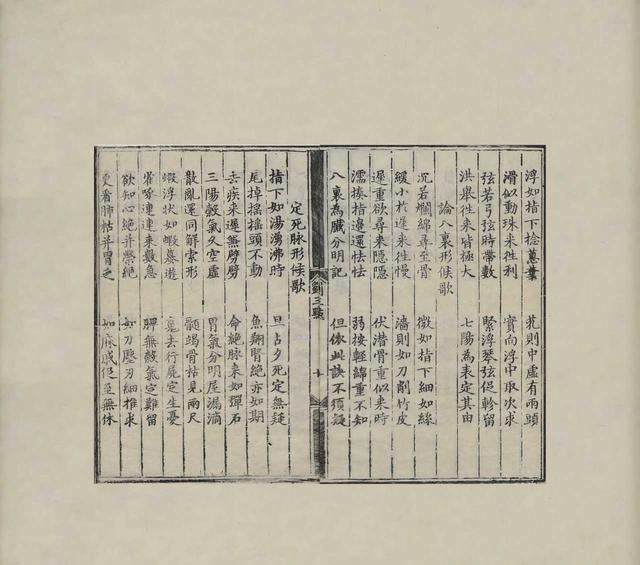 浮如指下捻葱葉　芤則中虛有兩頭
滑似動珠来徃利　實向浮中取次求
弦若弓弦時帶數　緊浮琴弦促軫留
洪舉徃来皆極大　七陽為表定其由
論八裏形候歌
沉若爛綿尋至骨　微如指下細如絲
緩小於遲来徃慢　濇則如刀削竹皮
遲重欲尋来隐隐　伏潛骨重似来時
濡挨指邊還怯怯　弱按輕綿重不知
八裏為臟分明記　但依此訣不須疑
三
十
定死脉形候歌
指下如湯湧沸時　旦占夕死定無疑
尾掉摇摇頭不動　魚翔腎絶亦如期
去疾来遲無劈劈　命絶脉来如彈石
三陽穀氣久空虛　胃氣分明屋漏滴
散亂還同解索形　髓竭骨枯見兩尺
蝦浮状如蝦蟇遊　魂去行屍定生憂
雀啄連連来數急　脾無穀氣定難留
欲知心絶并榮絶　如刀壓刃細推求
更看肺枯并胃乏　如麻戚促至無休